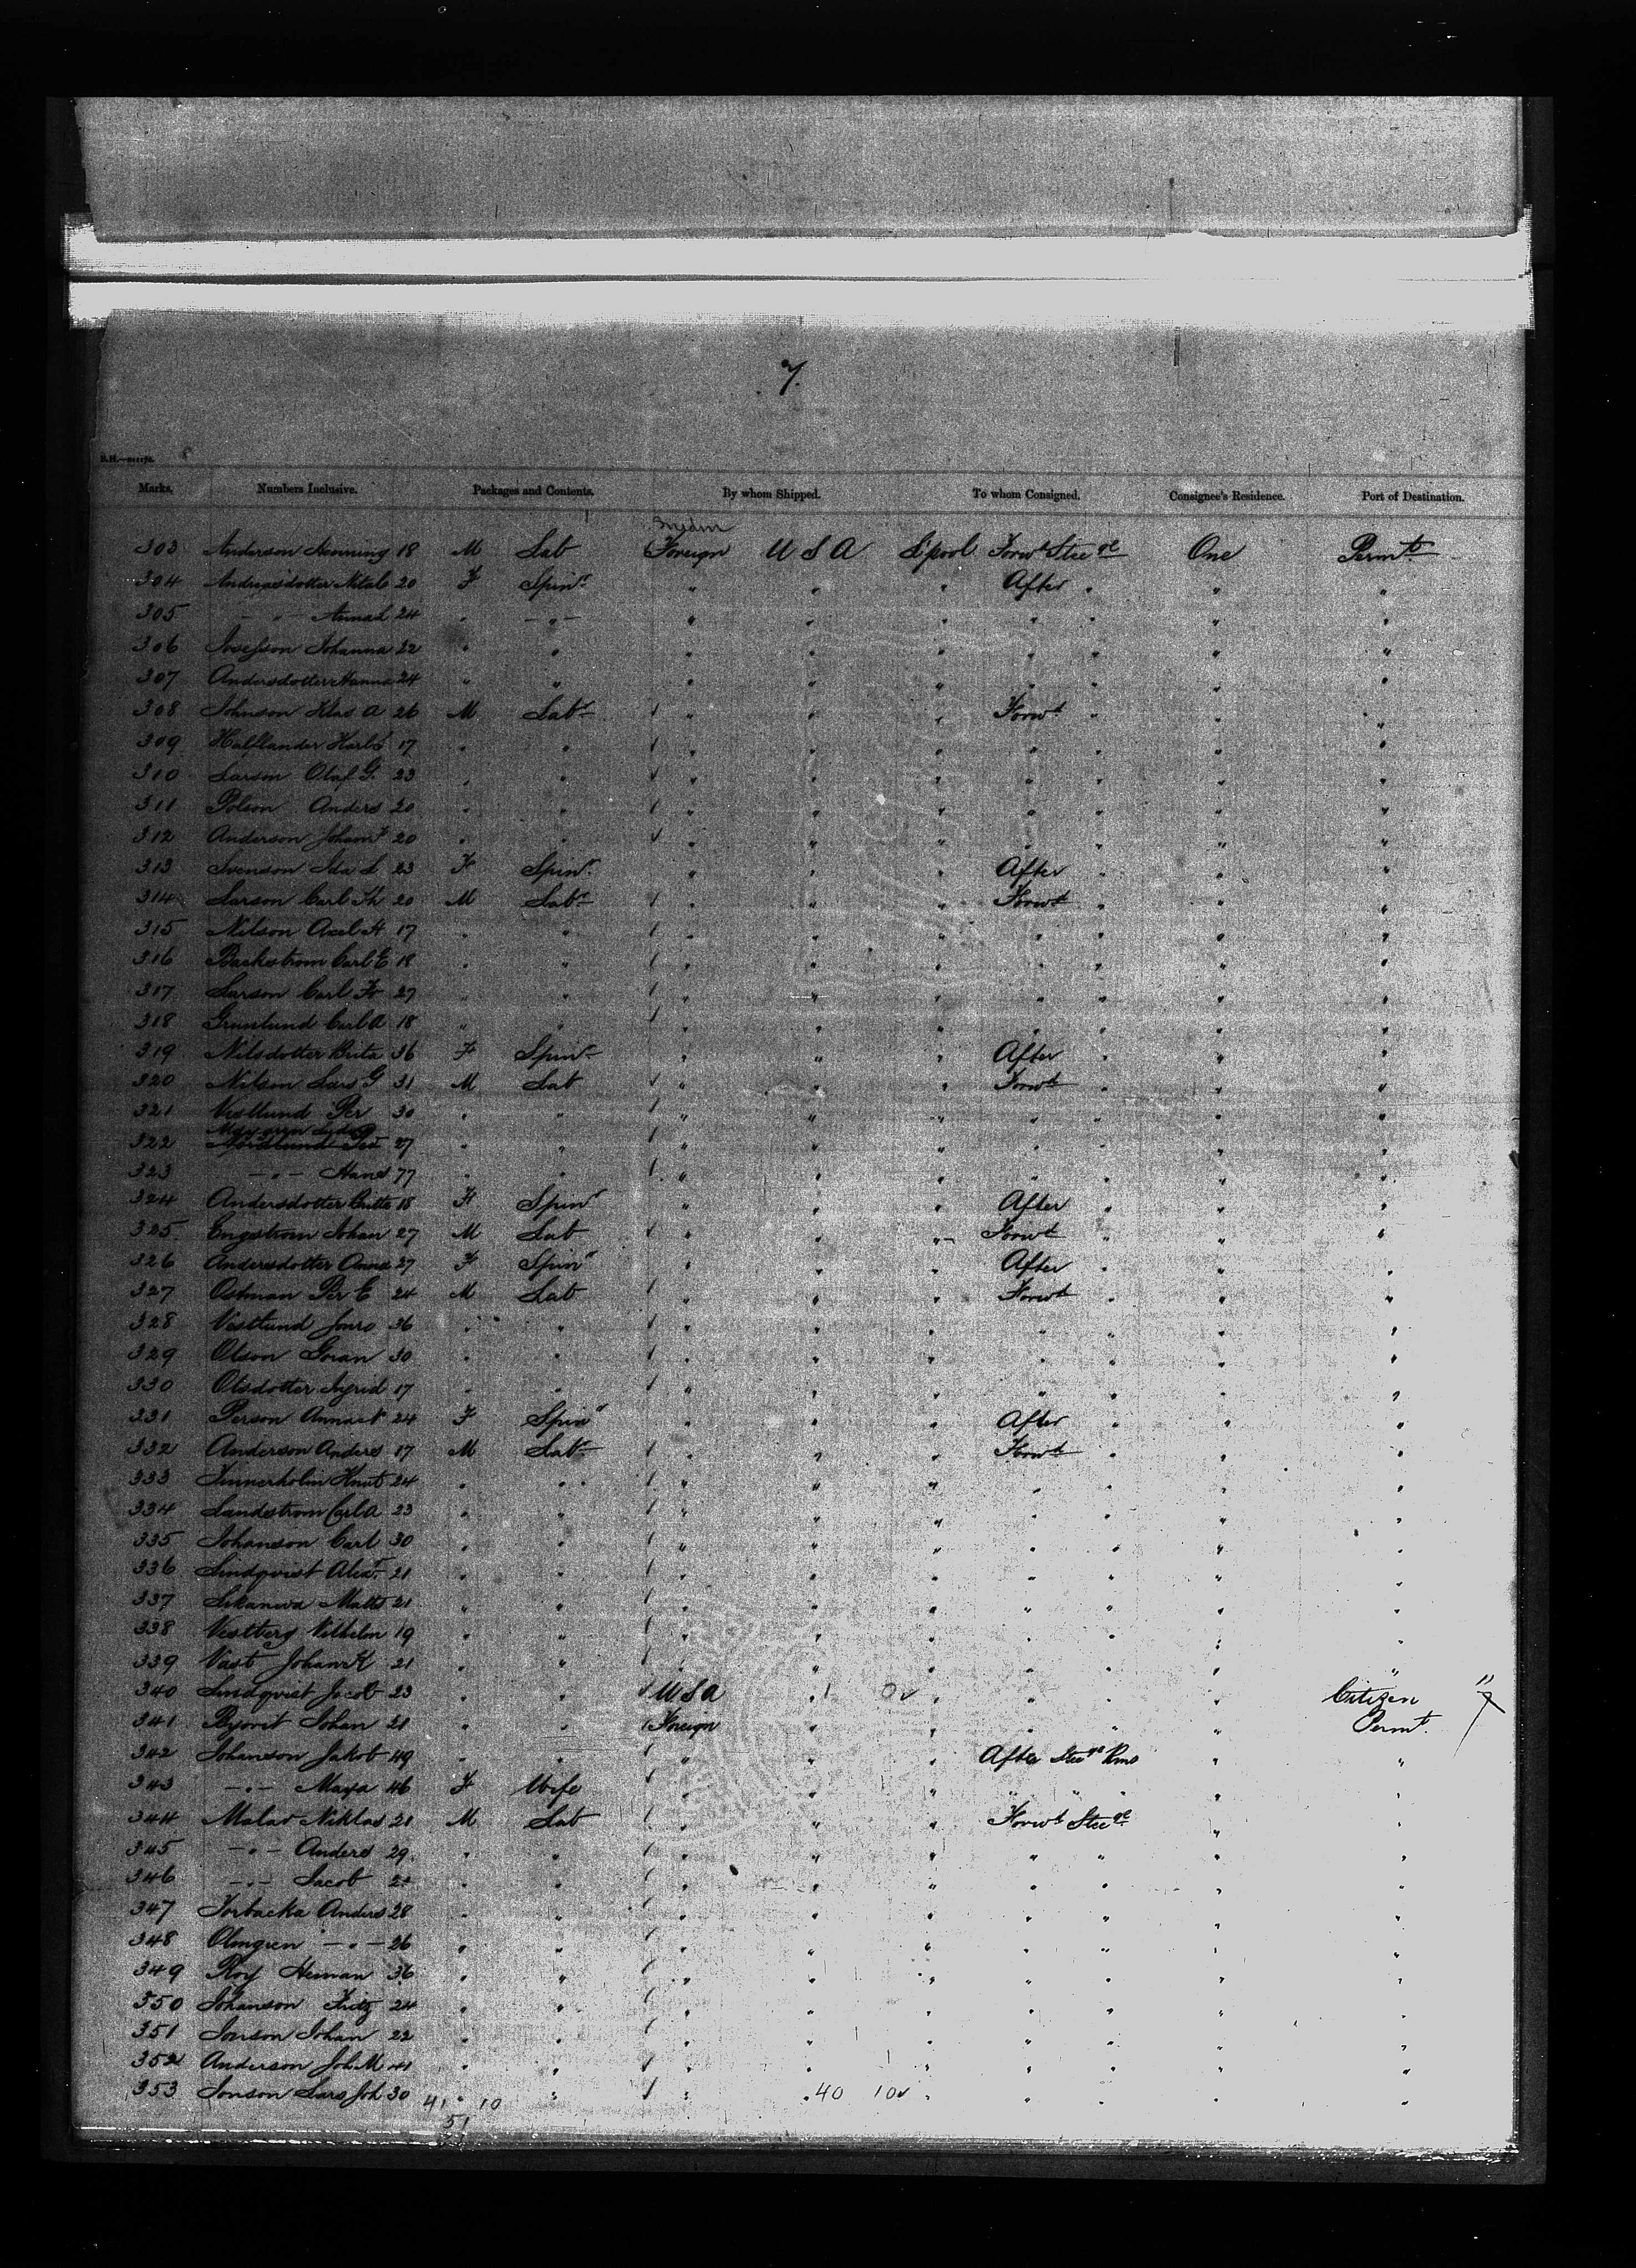 7.
Marks. Numbers Inclusive. Packages and Contents. By whom Shipped. To whom Consigned. Consignee's Residence. Port of Destination.
Sweden
303 Anderson Henning 18 M Lab Foreign U S A Lpool Forwd Steege One Permt
304 Andreasdotter 20 F Spinr " " " After " " "
305 - " - Anna 24 " - " - " " " " " " "
306 Josefson Johanna 22 " " " " " " " " "
307 Andersdotter Hanna 24 " " " " " " " " "
308 Johnson Klas A 26 M Labr " " " Forwd " " "
309 Halflander 17 " " " " " " " " "
310 Larson Olaf G. 23 " " " " " " " " "
311 Polson Anders 20 " " " " " " " " "
312 Anderson Johan F 20 " " " " " " " " "
313 Svenson Ida L 23 F Spinr " " " After " " "
314 Larson Carl Th 20 M Labr " " " Forwd " " "
315 Nilson Axel H 17 " " " " " " " " "
316 Backstrom Carl E 18 " " " " " " " " "
317 Larson Carl Fr 27 " " " " " " " " "
318 Granlund Carl A 18 " " " " " " " " "
319 Nilsdotter Brita 36 F Spinr " " " After " " "
320 Nilson Lars G 31 M Lab " " " Forwd " " "
321 Vestlund Per 30 " " " " " " " " "
322 27 " " " " " " " " "
323 - " - Hans 77 " " " " " " " " "
324 Andersdotter Britta 18 F Spinr " " " After " " "
325 Engstrom Johan 27 M Lab " " " Forwd " " "
326 Andersdotter Anna 27 F Spinr " " " After " " "
327 Ostman Per E 24 M Lab " " " Forwd " " "
328 Vestlund Jons 36 " " " " " " " " "
329 Olson Goran 30 " " " " " " " " "
330 Olsdotter Ingrid 17 " " " " " " " " "
331 Person Anna 24 F Spinr " " " After " " "
332 Anderson Anders 17 M Labr " " " Forwd " " "
333 Knut 24 " " " " " " " " "
334 Landstrom Carl A 23 " " " " " " " " "
335 Johanson Carl 30 " " " " " " " " "
336 Lindqvist Alexr 21 " " " " " " " " "
337 Matts 21 " " " " " " " " "
338 Vestberg Vilhelm 19 " " " " " " " " "
339 Vast Johan K 21 " " " " " " " " "
340 Lindqvist Jacob 23 " " U S A " " " " " Citizen "
341 Johan 21 " " Foreign " " " " " Permt
342 Johanson Jakob 49 " " " " " After Steege Rms " "
343 - " - Maya 46 F Wife " " " " " " "
344 Malar Niklas 21 M Lab " " " Forwd Steege " "
345 - " - Anders 29 " " " " " " " " "
346 - " - Jacob " " " " " " " " "
347 Torbacka Anders 28 " " " " " " " " "
348 Olmgren - " - 26 " " " " " " " " "
349 Roy Heman 36 " " " " " " " " "
350 Johanson Fritz 24 " " " " " " " " "
351 Jonson Johan 22 " " " " " " " " "
352 Anderson Joh M 41 " " " " " " " " "
353 Jonson Lars Joh 30 " " " " " " " " "
41 10 40 10
51